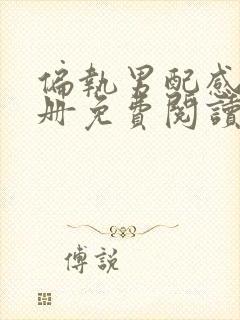 偏執男配感
冊免費閱讀
傅說